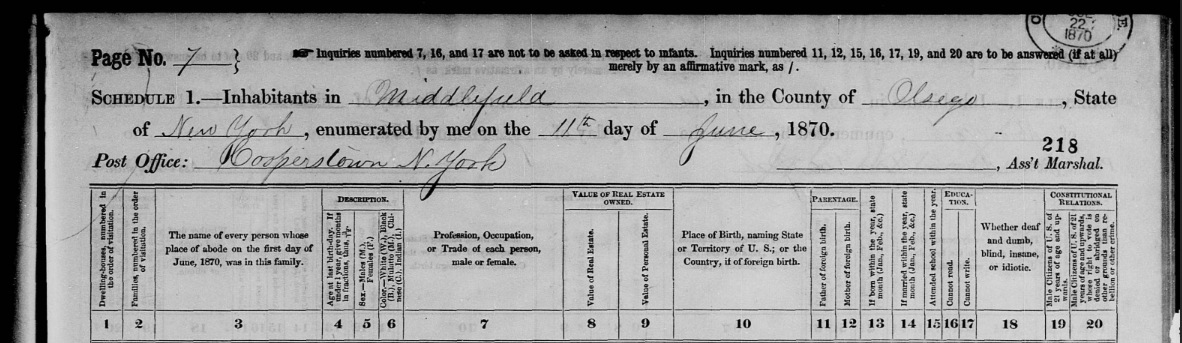 22
1870
Page No. 7 } ☞ Inquiries numbered 7, 16, and 17 are not to be asked in respect to infants. Inquiries numbered 11, 12, 15, 16, 17, 19, and 20 are to be answered (if at all)
merely by an affirmative mark, as /.
SCHEDULE 1.—Inhabitants in Middlefield, in the County of Otsego, State
of New York, enumerated by me on the 11th day of June, 1870.
218
Post Office: Cooperstown N. York , Ass't Marshal.
Dwelling-houses, numbered in the order of visitation.
Families, numbered in the order of visitation.
The name of every person whose
place of abode on the first day of
June, 1870, was in this family.
DESCRIPTION.
Age at last birth-day. If under 1 year, give months in fractions, thus,
Sex.—Males (M.), Females (F.)
Color.—White (W.), Black (B.), Mulatto (M.), Chinese (C.), Indian (I.)
Profession, Occupation,
or Trade of each person,
male or female.
VALUE OF REAL ESTATE
OWNED.
Value of Real Estate.
Value of Personal Estate.
Place of Birth, naming State
or Territory of U. S.; or the
Country, if of foreign birth.
PARENTAGE.
Father of foreign birth.
Mother of foreign birth.
If born within the year, state month (Jan., Feb., &c.)
If married within the year, state month (Jan., Feb., &c.)
Attended school within the year.
EDUCA-
TION.
Cannot read.
Cannot write.
Whether deaf
and dumb,
blind, insane,
or idiotic.
CONSTITUTIONAL
RELATIONS.
Male Citizens of U. S. of 21 years of age and upwards.
Male Citizens of U. S. of 21 years of age and upwards, where right to vote is denied or abridged on other grounds than rebellion or other crime.
1 2 3 4 5 6 7 8 9 10 11 12 13 14 15 16 17 18 19 20